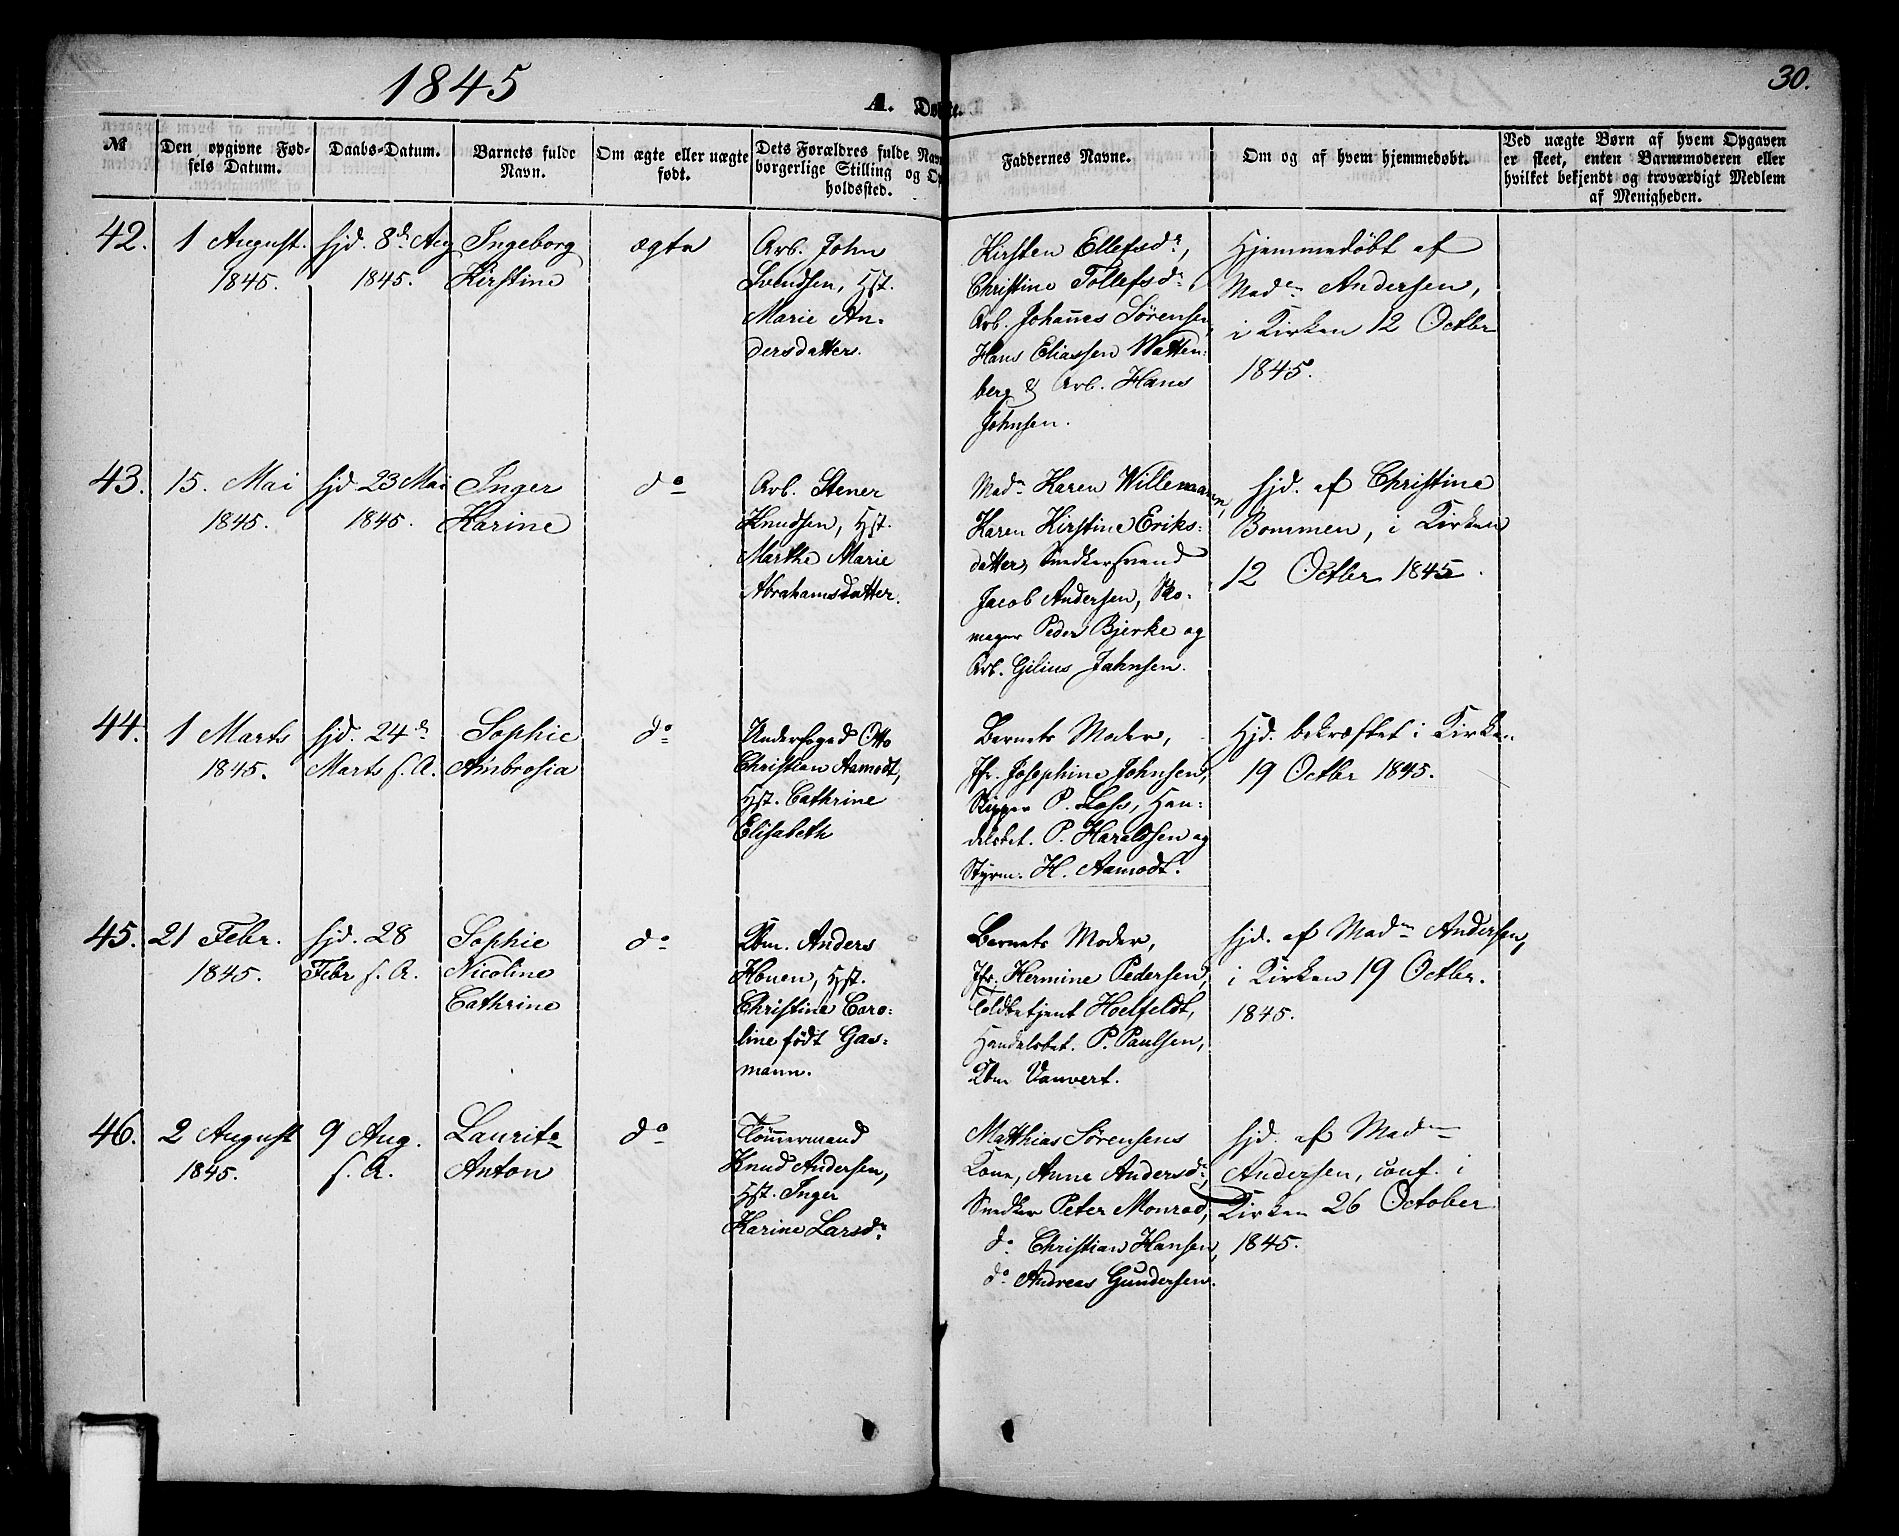 1845
30.
A. Døbte.
№
Den opgivne Fød-
sels Datum.
Daabs-Datum.
Barnets fulde
Navn.
Om ægte eller uægte
født.
Dets Forældres fulde Nav
borgerlige Stilling og Op
holdssted.
Faddernes Navne.
Om og af hvem hjemmedøbt.
Ved uægte Børn af hvem Opgaven
er skeet, enten Barnemoderen eller
hvilket bekjendt og troværdigt Medlem
af Menigheden.
42.
1 August
1845.
hjd. 8de Aug
1845.
Ingeborg
Kirstine
ægte
Arb. John
Svendsen, Hst.
Marie An-
dersdatter.
Kirsten Ellefsdr,
Christine Tollefsdr
Arb. Johannes Sørensen,
Hans Eliassen Watten-
berg & Arb. Hans
Johnsen.
Hjemmedøbt af
Madm Andersen,
i Kirken 12 Octbr
1845.
43.
15. Mai
1845.
hjd. 23 Mai
1845.
Inger
Karine
do
Arb. Stener
Knudsen, Hst.
Marthe Marie
Abrahamsdatter.
Madm Karen Willemann,
Karen Kirstine Eriks-
datter, Snedkersvend
Jacob Andersen, Sko-
mager Peder Bjerke og
Arb. Gilius Jahnsen.
hjd. af Christine
Bommen, i Kirken
12 Octbr 1845.
44.
1 Marts
1845.
hjd. 24de
Marts s. A.
Sophie
Ambrosia
do
Underfoged Otto
Christian Aamodt,
Hst. Cathrine
Elisabeth
Barnets Moder,
Jfr. Josephine Johnsen,
Skipper P. Loss, Han-
delsbet. P. Haraldsen og
Styrm. H. Aamodt.
Hjd. bekræftet i Kirken
19 Octbr 1845.
45.
21 Febr.
1845.
hjd. 28
Febr s. A.
Sophie
Nicoline
Cathrine
do
Kbm. Anders
Houen, Hst.
Christine Caro-
line født Gas-
mann.
Barnets Moder,
Jfr. Hermine Pedersen,
Toldbetjent Hoelfeldt,
Handelsbet. P. Paulsen,
Kbm Vauvert.
hjd. af Madm Andersen,
i Kirken 19 Octbr.
1845.
46.
2 August
1845.
9 Aug.
s. A.
Lauritz
Anton
do
Tømmermand
Knud Andersen,
Hst. Inger
Karine Larsdr
Matthias Sørensens
Kone, Anne Andersdr,
Snedker Peter Monrad,
do Christian Hansen,
do Andreas Gundersen.
hjd. af Madm
Andersen, conf. i
Kirken 26 October
1845.